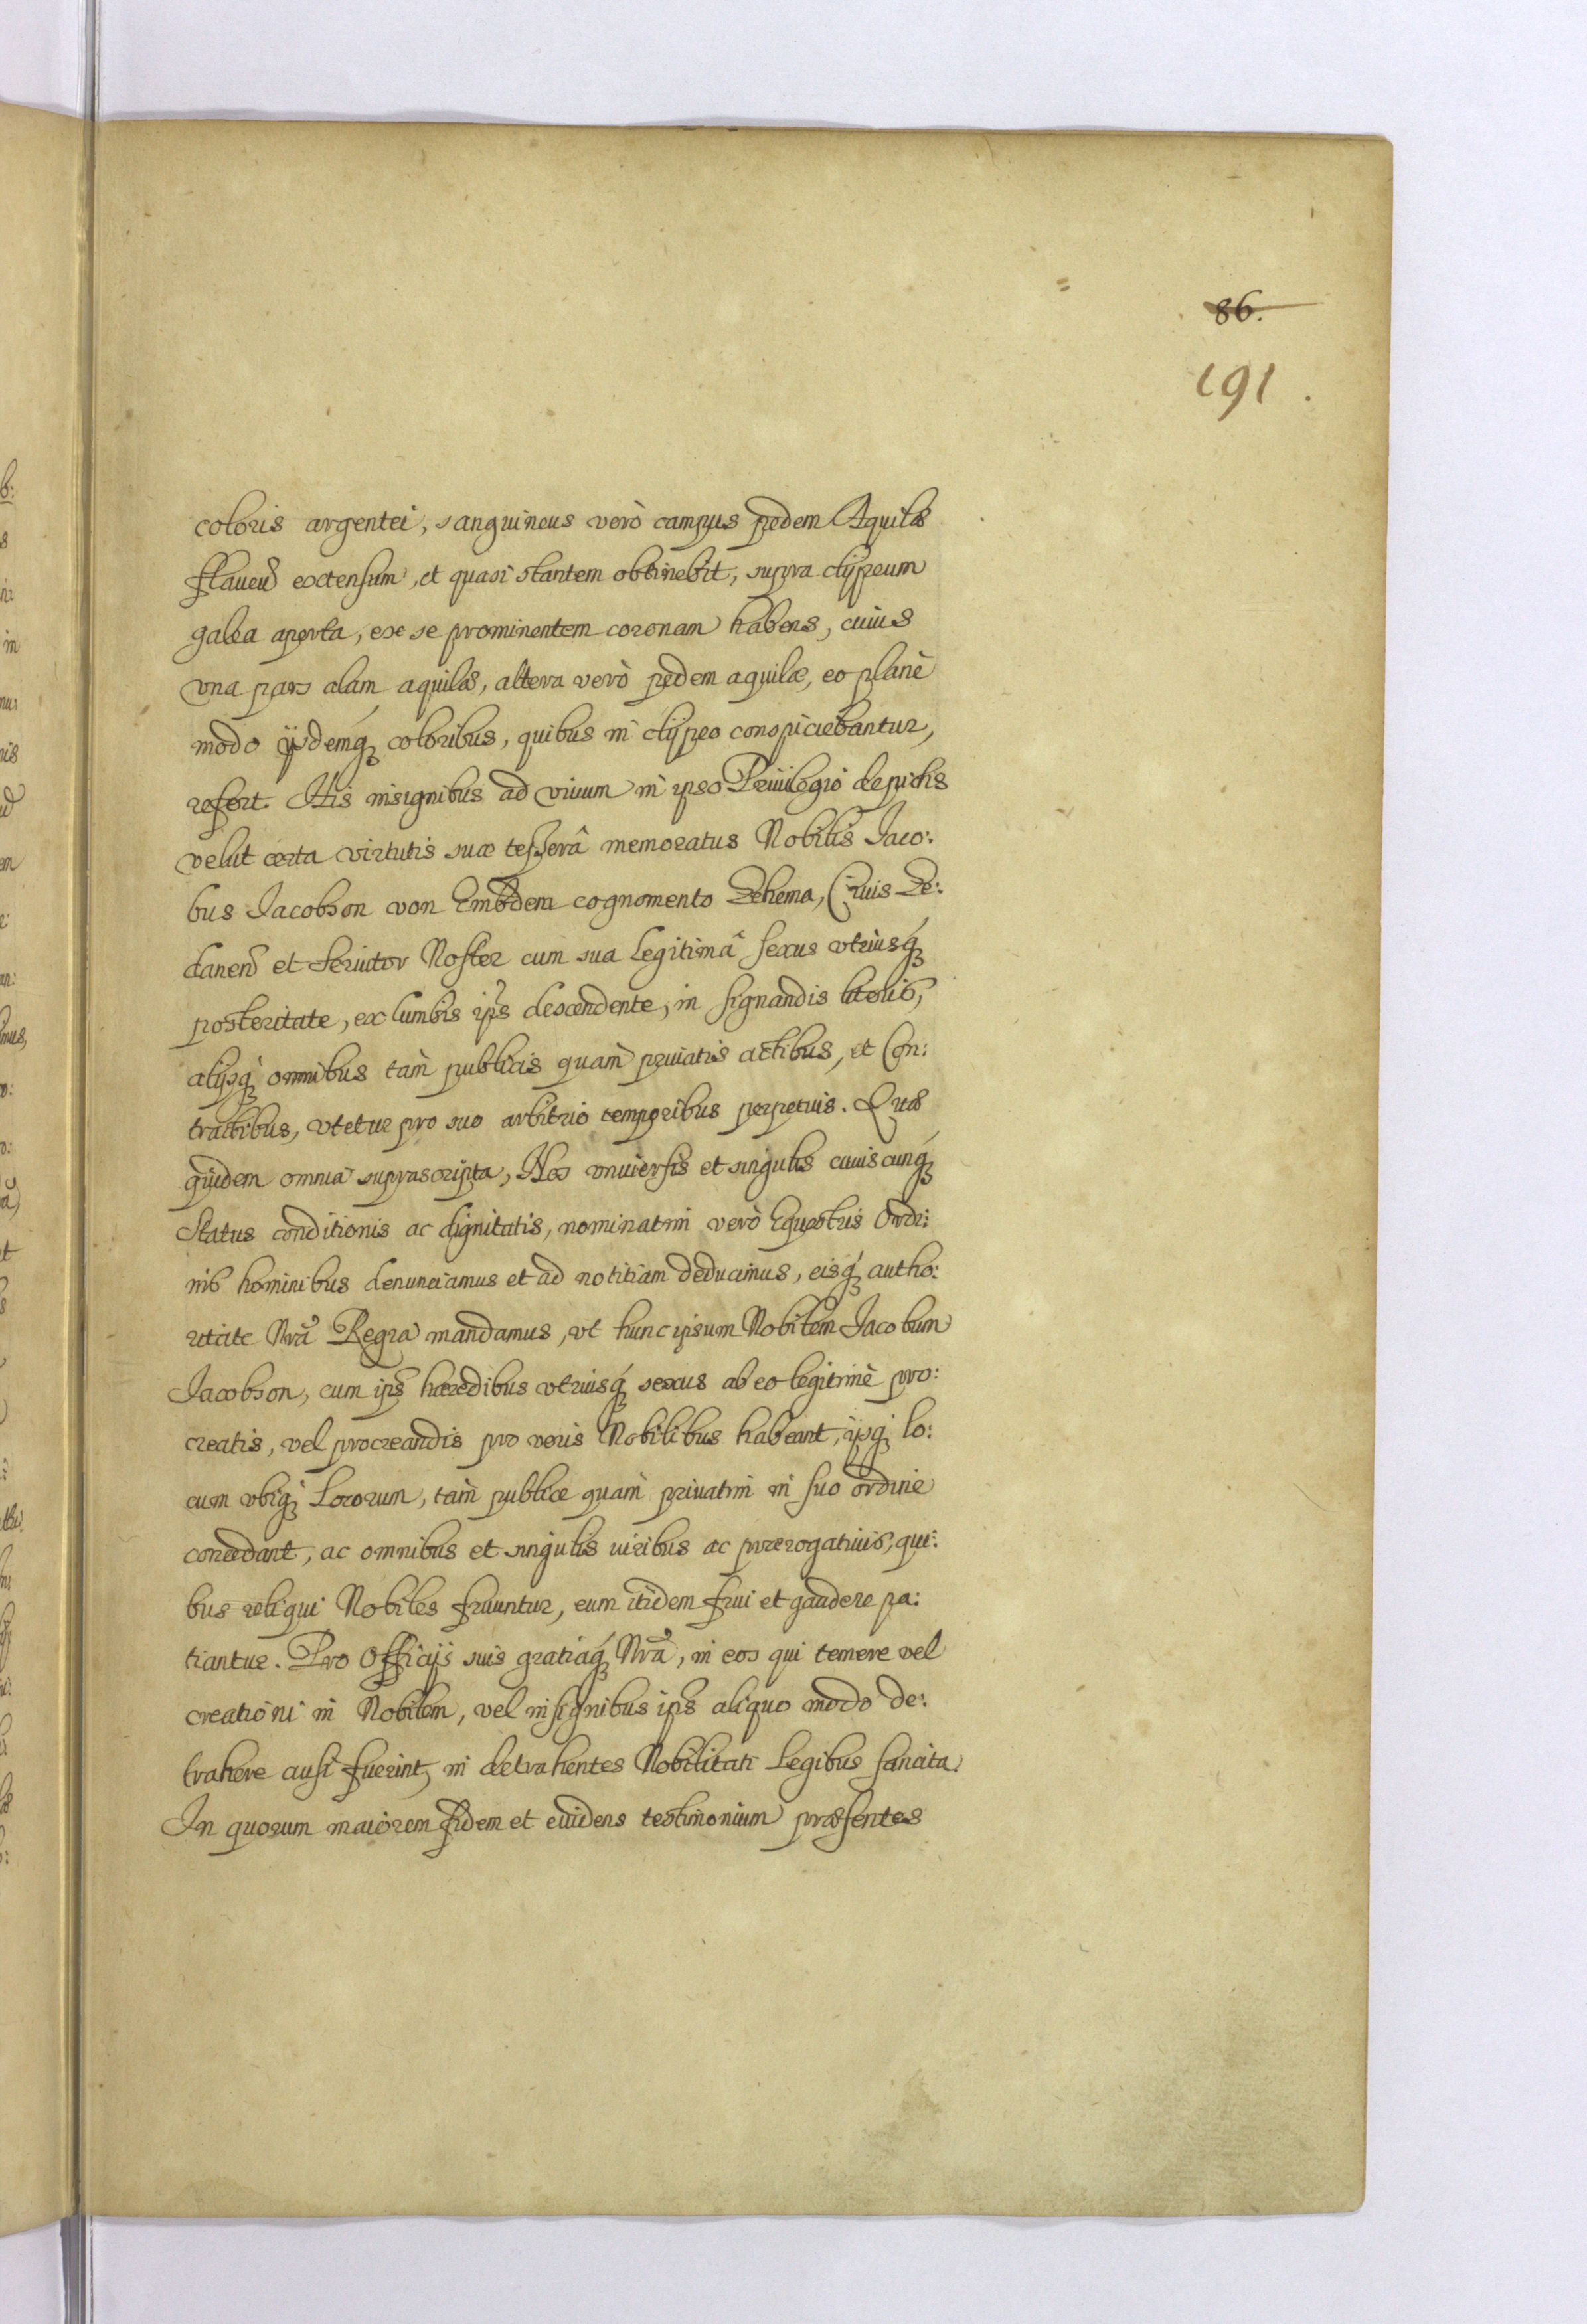 86.
191.
coloris argentei, sanguineus verò campus pedem Aquilæ
flauem extensum, et quasi stantem obtinebit, supra clypeum
galea aperta, ex se prominentem coronam habens, cuius
vna pars alam aquilæ, altera verò pedem aquilæ, eo planè
modo ijsdemq́ꝫ coloribus, quibus in clypeo conspiciebantur,
refert. His insignibus ad viuum in ipso Priuilegio depictis
velut certa virtutis suæ tesserâ memoratus Nobilis Jaco:
bus Jacobson von Embdem cognomento Zehema, Ciuis Ge:
danen et Seruitor Noster cum sua legitimâ sexus vtriusq́ꝫ
posteritate, ex lumbis ips descendente, in signandis literis,
alijsq́ꝫ omnibus tàm publicis quàm priuatis actibus, et Con:
tractibus, vtetur pro suo arbitrio temporibus perpetuis. Quæ
quidem omnia suprascripta, Nos vniuersis et singulis cuiuscunq́ꝫ
Status conditionis ac dignitatis, nominatim verò Equestris Ordi:
nis hominibus denunciamus et ad notitiam deducimus, eisq́ꝫ autho:
ritate Nrã Regia mandamus, vt hunc ipsum Nobilem Jacobum
Jacobson, cum ips hæredibus vtriusq́ꝫ sexus ab eo legitimè pro:
creatis, vel procreandis pro veris Nobilibus habeant, ijsqꝫ lo:
cum vbiqꝫ Locorum, tàm publice quàm priuatim in suo ordine
concedant, ac omnibus et singulis iuribus ac prærogatiuis, qui:
bus reliqui Nobiles fruuntur, eum itidem frui et gaudere pa:
tiantur. Pro Officijs suis gratiaq́ꝫ Nrã, in eos qui temere vel
creationi in Nobilem, vel insignibus ips aliquo modo de:
trahere ausi fuerint, in detrahentes Nobilitati Legibus sancita.
In quorum maiorem fidem et euidens testimonium præsentes